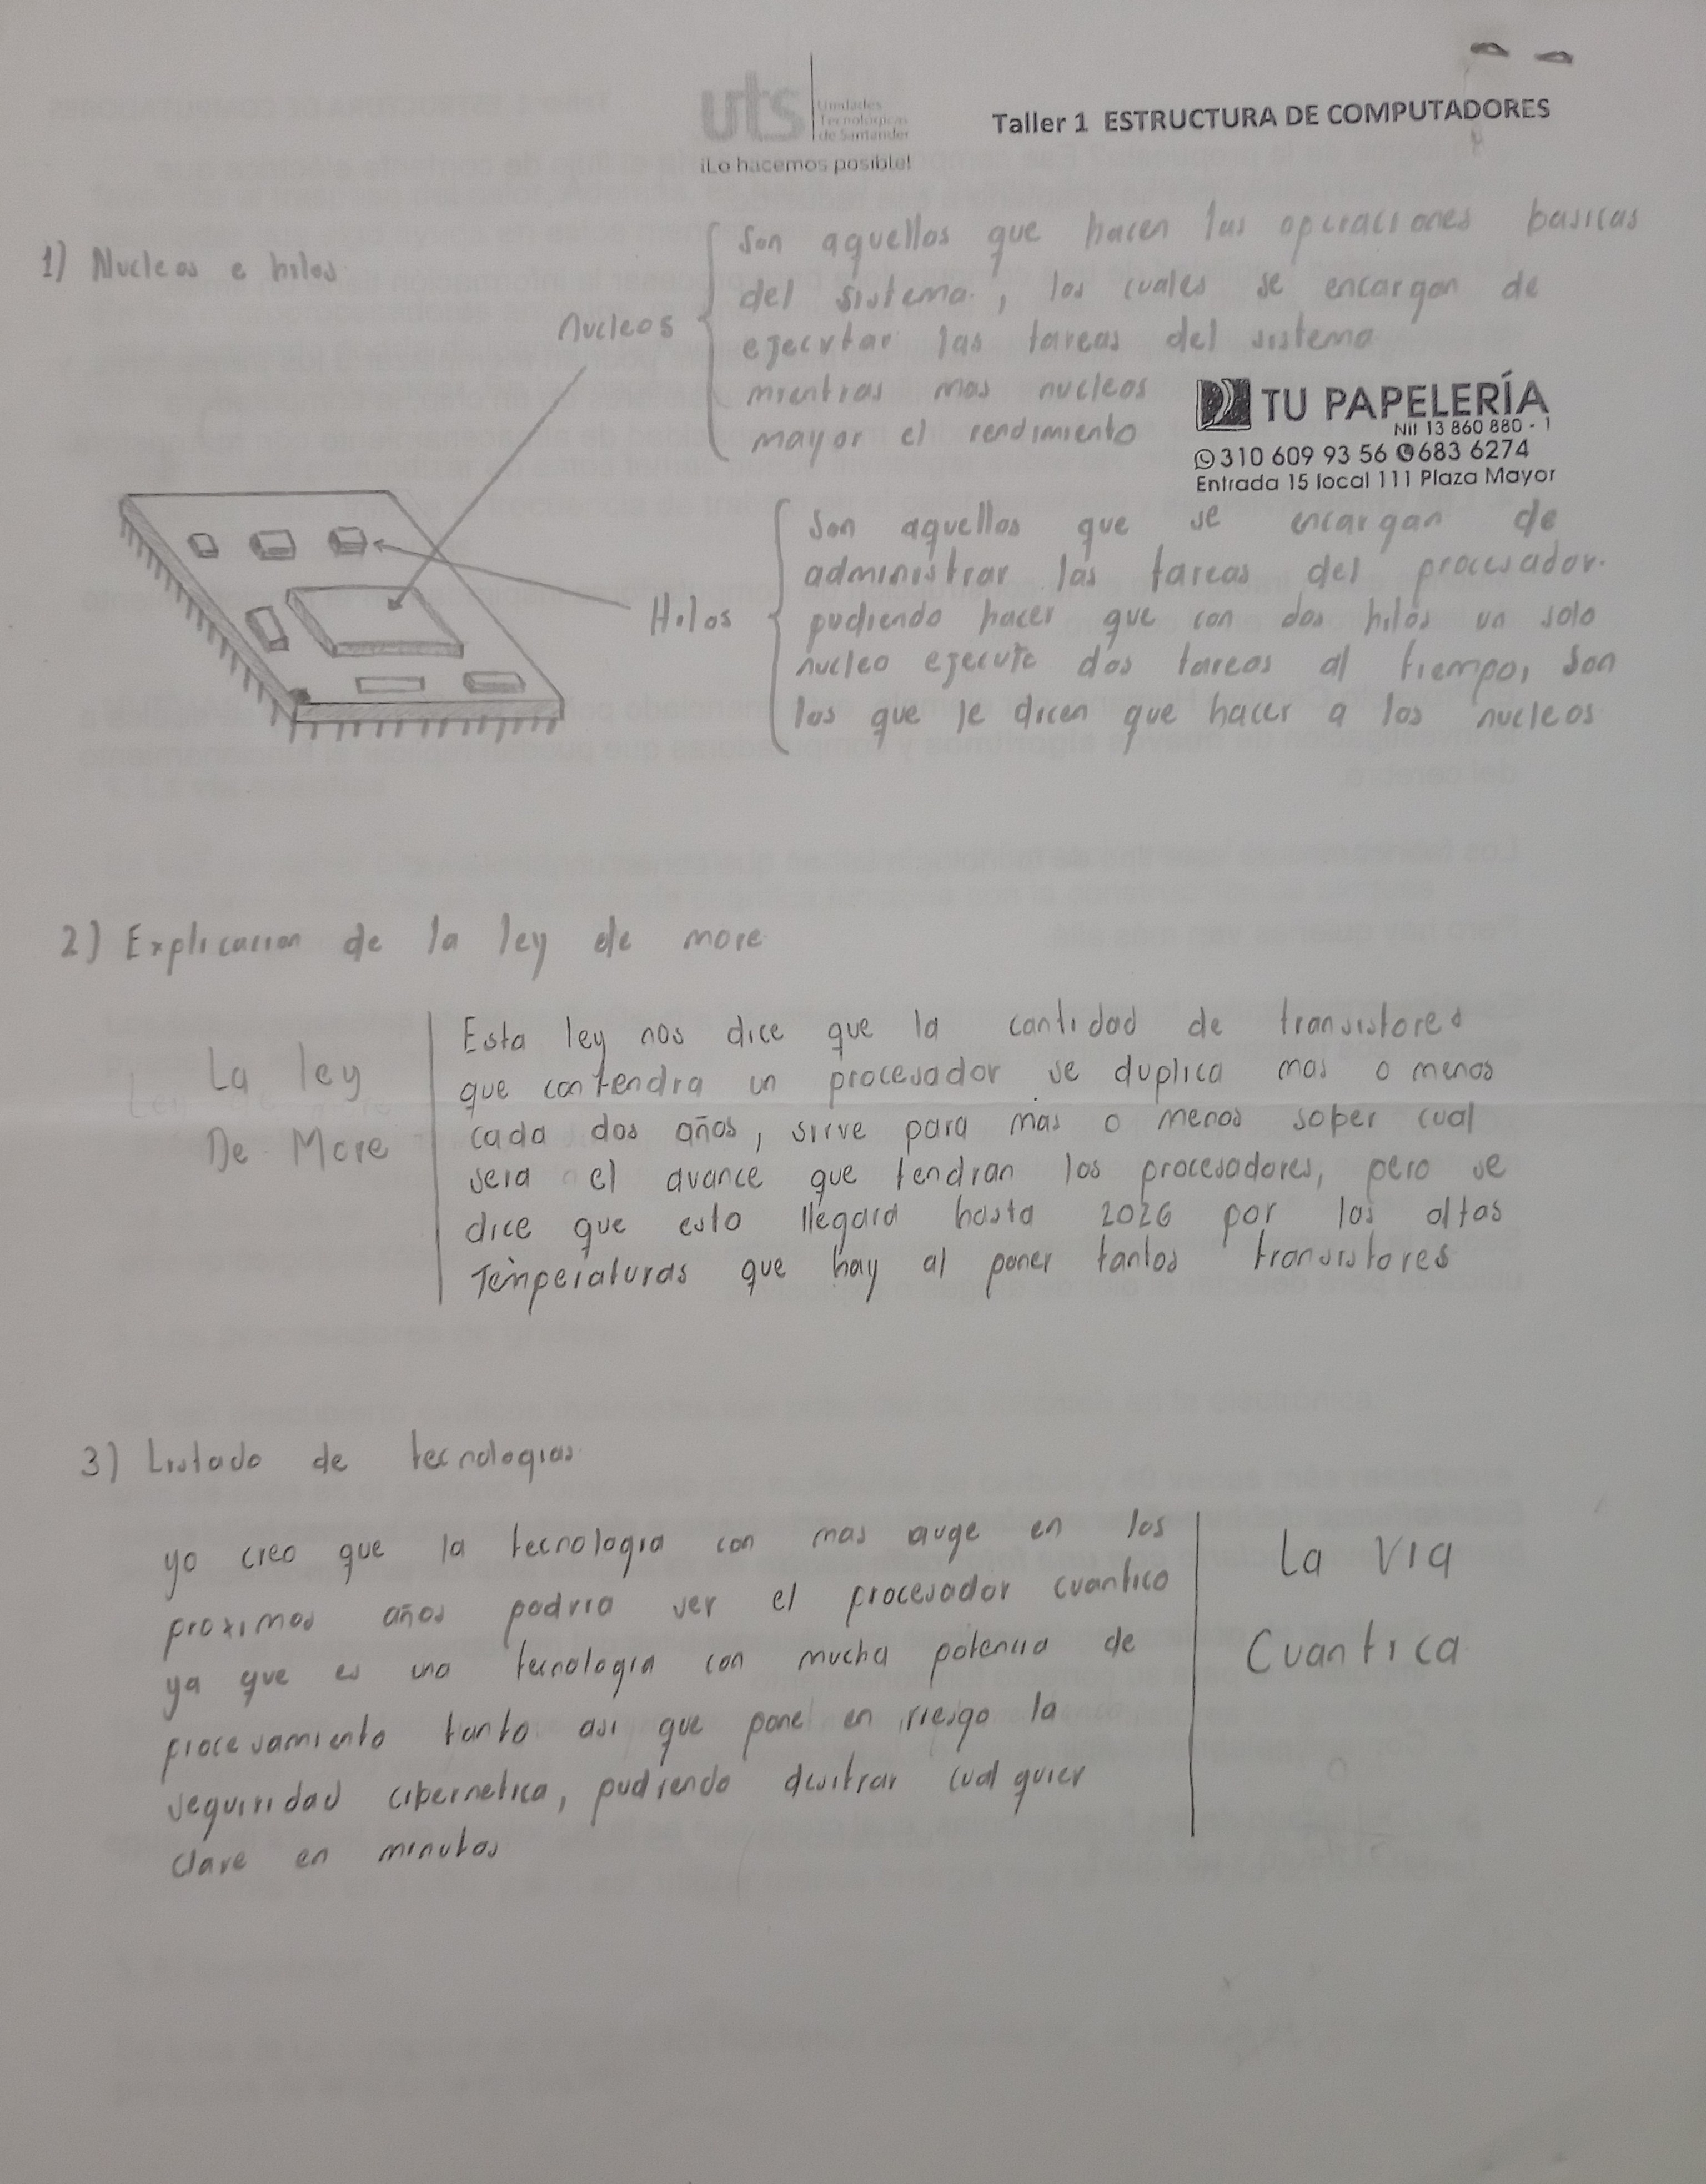 uts Unidades
Tecnológicas
de Santander
¡Lo hacemos posible!
Taller 1 ESTRUCTURA DE COMPUTADORES
1) Nucleos e hilos
Nucleos
Son aquellos que hacen las operaciones basicas
del sistema, los cuales se encargan de
ejecutar las tareas del sistema
mientras mas nucleos
mayor el rendimiento
TU PAPELERÍA
Nit 13 860 880 - 1
310 609 93 56 683 6274
Entrada 15 local 111 Plaza Mayor
Hilos
Son aquellos que se encargan de
administrar las tareas del procesador.
pudiendo hacer que con dos hilos un solo
nucleo ejecute dos tareas al tiempo, son
los que le dicen que hacer a los nucleos
2) Explicacion de la ley de more
La ley
De More
Esta ley nos dice que la cantidad de transistores
que contendra un procesador se duplica mas o menos
cada dos años, sirve para mas o menos saber cual
sera el avance que tendran los procesadores, pero se
dice que esto llegara hasta 2026 por las altas
Temperaturas que hay al poner tantos transistores
3) Listado de tecnologias
yo creo que la tecnologia con mas auge en los
proximos años podria ser el procesador cuantico
ya que es una tecnologia con mucha potencia de
procesamiento tanto asi que pone en riesgo la
seguridad cibernetica, pudiendo desitrar cualquier
clave en minutos
La Via
Cuantica